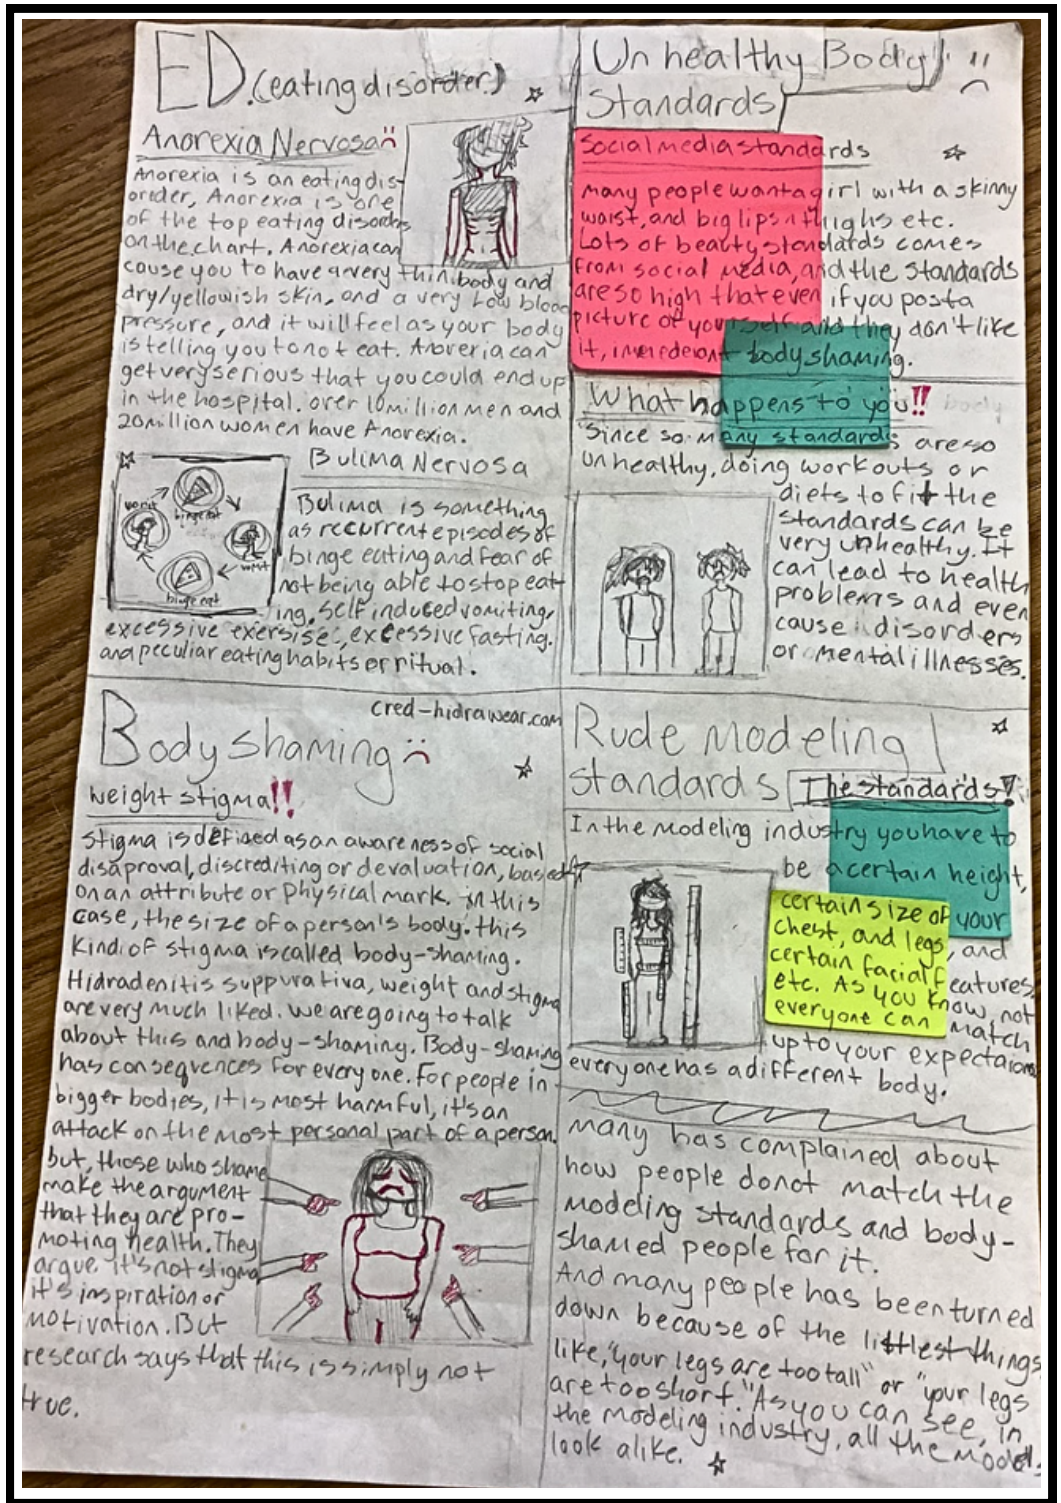 ED. (eating disorder.)
Anorexia Nervosa
Anorexia is an eating dis-
order, Anorexia is one
of the top eating disorders
on the chart. Anorexia can
cause you to have a very thin body and
dry/yellowish skin, and a very low blood
pressure, and it will feel as your body
is telling you to not eat. Anorexia can
get very serious that you could end up
in the hospital. over 10 million men and
20 million women have Anorexia.
Bulima Nervosa
binge eat
vomit
vomit
binge eat
Bulima is something
as recurrent episodes of
binge eating and fear of
not being able to stop eat-
ing, self induced vomiting,
excessive exersise, excessive fasting.
and peculiar eating habits or ritual.
Un healthy Body
Standards
Social media standards
Many people want a girl with a skinny
waist, and big lips n thighs etc.
Lots of beauty standards comes
from social media, and the standards
are so high that even if you post a
picture of yourself and they don't like
it, body shaming.
What happens to you!!
Since so many standards are so
unhealthy, doing workouts or
diets to fit the
standards can be
very unhealthy. It
can lead to health
problems and even
cause disorders
or mental illnesses.
cred-hidrawear.com
Body shaming
weight stigma!!
Stigma is defined as an awareness of social
disaproval, discrediting or devaluation, based
on an attribute or physical mark. in this
case, the size of a person's body. this
kind of stigma is called body-shaming.
Hidradenitis suppurativa, weight and stigma
are very much liked. we are going to talk
about this and body-shaming. Body-shaming
has consequences for everyone. For people in
bigger bodies, it is most harmful, it's an
attack on the most personal part of a person.
but, those who shame
make the argument
that they are pro-
moting health. They
argue it's not stigma
it's inspiration or
motivation. But
research says that this is simply not
true.
Rude modeling
standards
The standards!
In the modeling industry you have to
be a certain height,
certain size of your
chest, and legs, and
certain facial features,
etc. As you know, not
everyone can match
up to your expectaions
everyone has a different body.
many has complained about
how people do not match the
modeling standards and body-
shamed people for it.
And many people has been turned
down because of the littlest things
like, "your legs are too tall" or "your legs
are too short." As you can see, in
the modeling industry, all the models
look alike.